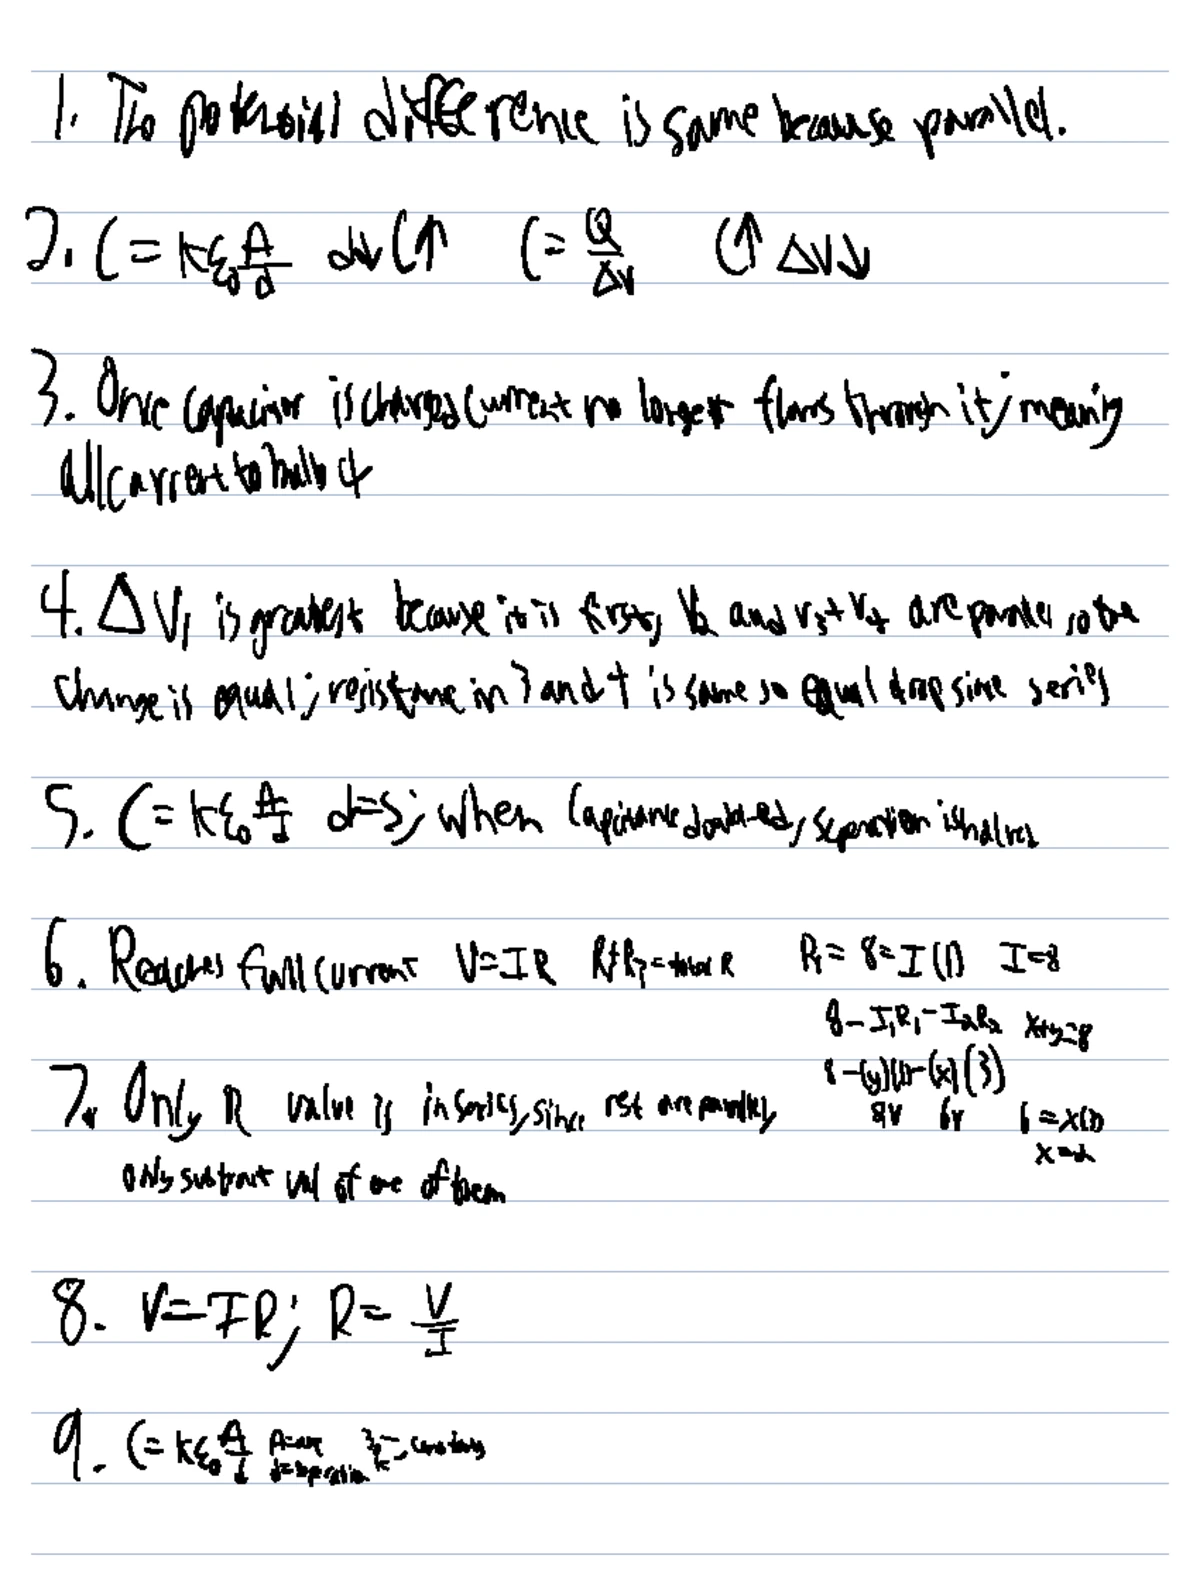 1. The potensial difference is same because parallel.
2. C = kε₀ A/d d↓ C↑ C = Q/ΔV C↑ ΔV↓
3. Once capacitor is charged current no longer flows through it; meaning
all current to bulb 4
4. ΔV₁ is greatest because it is first, V₂ and V₃+V₄ are parallel so the
change is equal; resistance in 3 and 4 is same so equal drop since series
5. C = kε₀ A/d d=s; when capacitance doubled, separation is halved
6. Reaches full current V=IR R₁+R₂=total R R₁= 8=I(1) I=8
8-I₁R₁-I₂R₂ x+y=8
8-(y)(1)-(x)(3)
6v 6=x(3)
x=2
7. Only R value is in series, since rest are parallel,
only subtract val of one of them
8. V=IR; R= V/I
9. C = kε₀ A/d A=area constants
d=separation